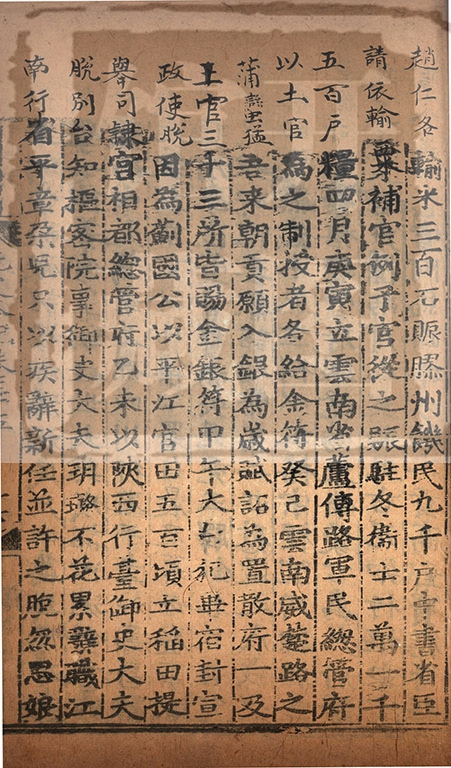 趙仁各輸米三百石賑滕州饑民九千户中書省臣
請依輸粟補官例予官從之賑駐冬衞士二萬一千
五百户糧四月庚寅立雲南省蘆傳路軍民總管府
以土官為之制授者各給金符癸己雲南威楚路之
蒲蠻猛吾来朝貢願入銀為歲賦詔為置散府一及
土官三十三所皆賜金銀符甲午大白犯畢宿封宣
政使脫因為薊國公以平江官田五百頃立稻田提
舉司隸宮相都總管府乙未以陝西行臺御史大夫
脫別台知樞宻院事御史大夫玥璐不花累辭職江
南行省平章朶兒只以疾辭新任並許之忽思娘